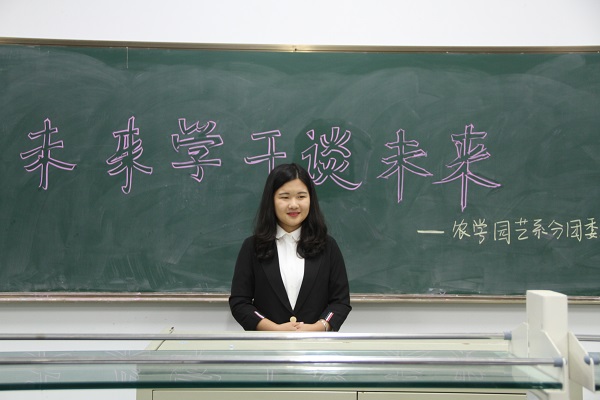 未来学干谈未来
——农学园艺系分团委